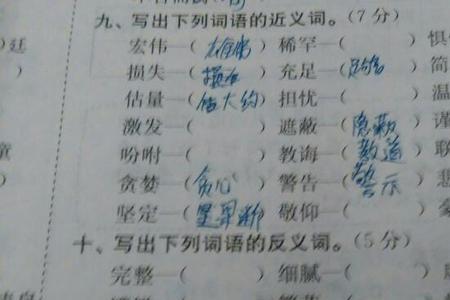 九、写出下列词语的近义词。(7分)
宏伟—( ) 稀罕—( ) 惧
损失—( ) 充足—(足够) 简
估量—(估大约) 担忧—( ) 温
激发—( ) 遮蔽—(隐蔽) 谨
吩咐—( ) 教诲—(教道) 联
贪婪—(贪心) 警告—(警示) 悲
坚定—( ) 敬仰—( )
十、写出下列词语的反义词。(5分)
完整—( ) 细腻—( )